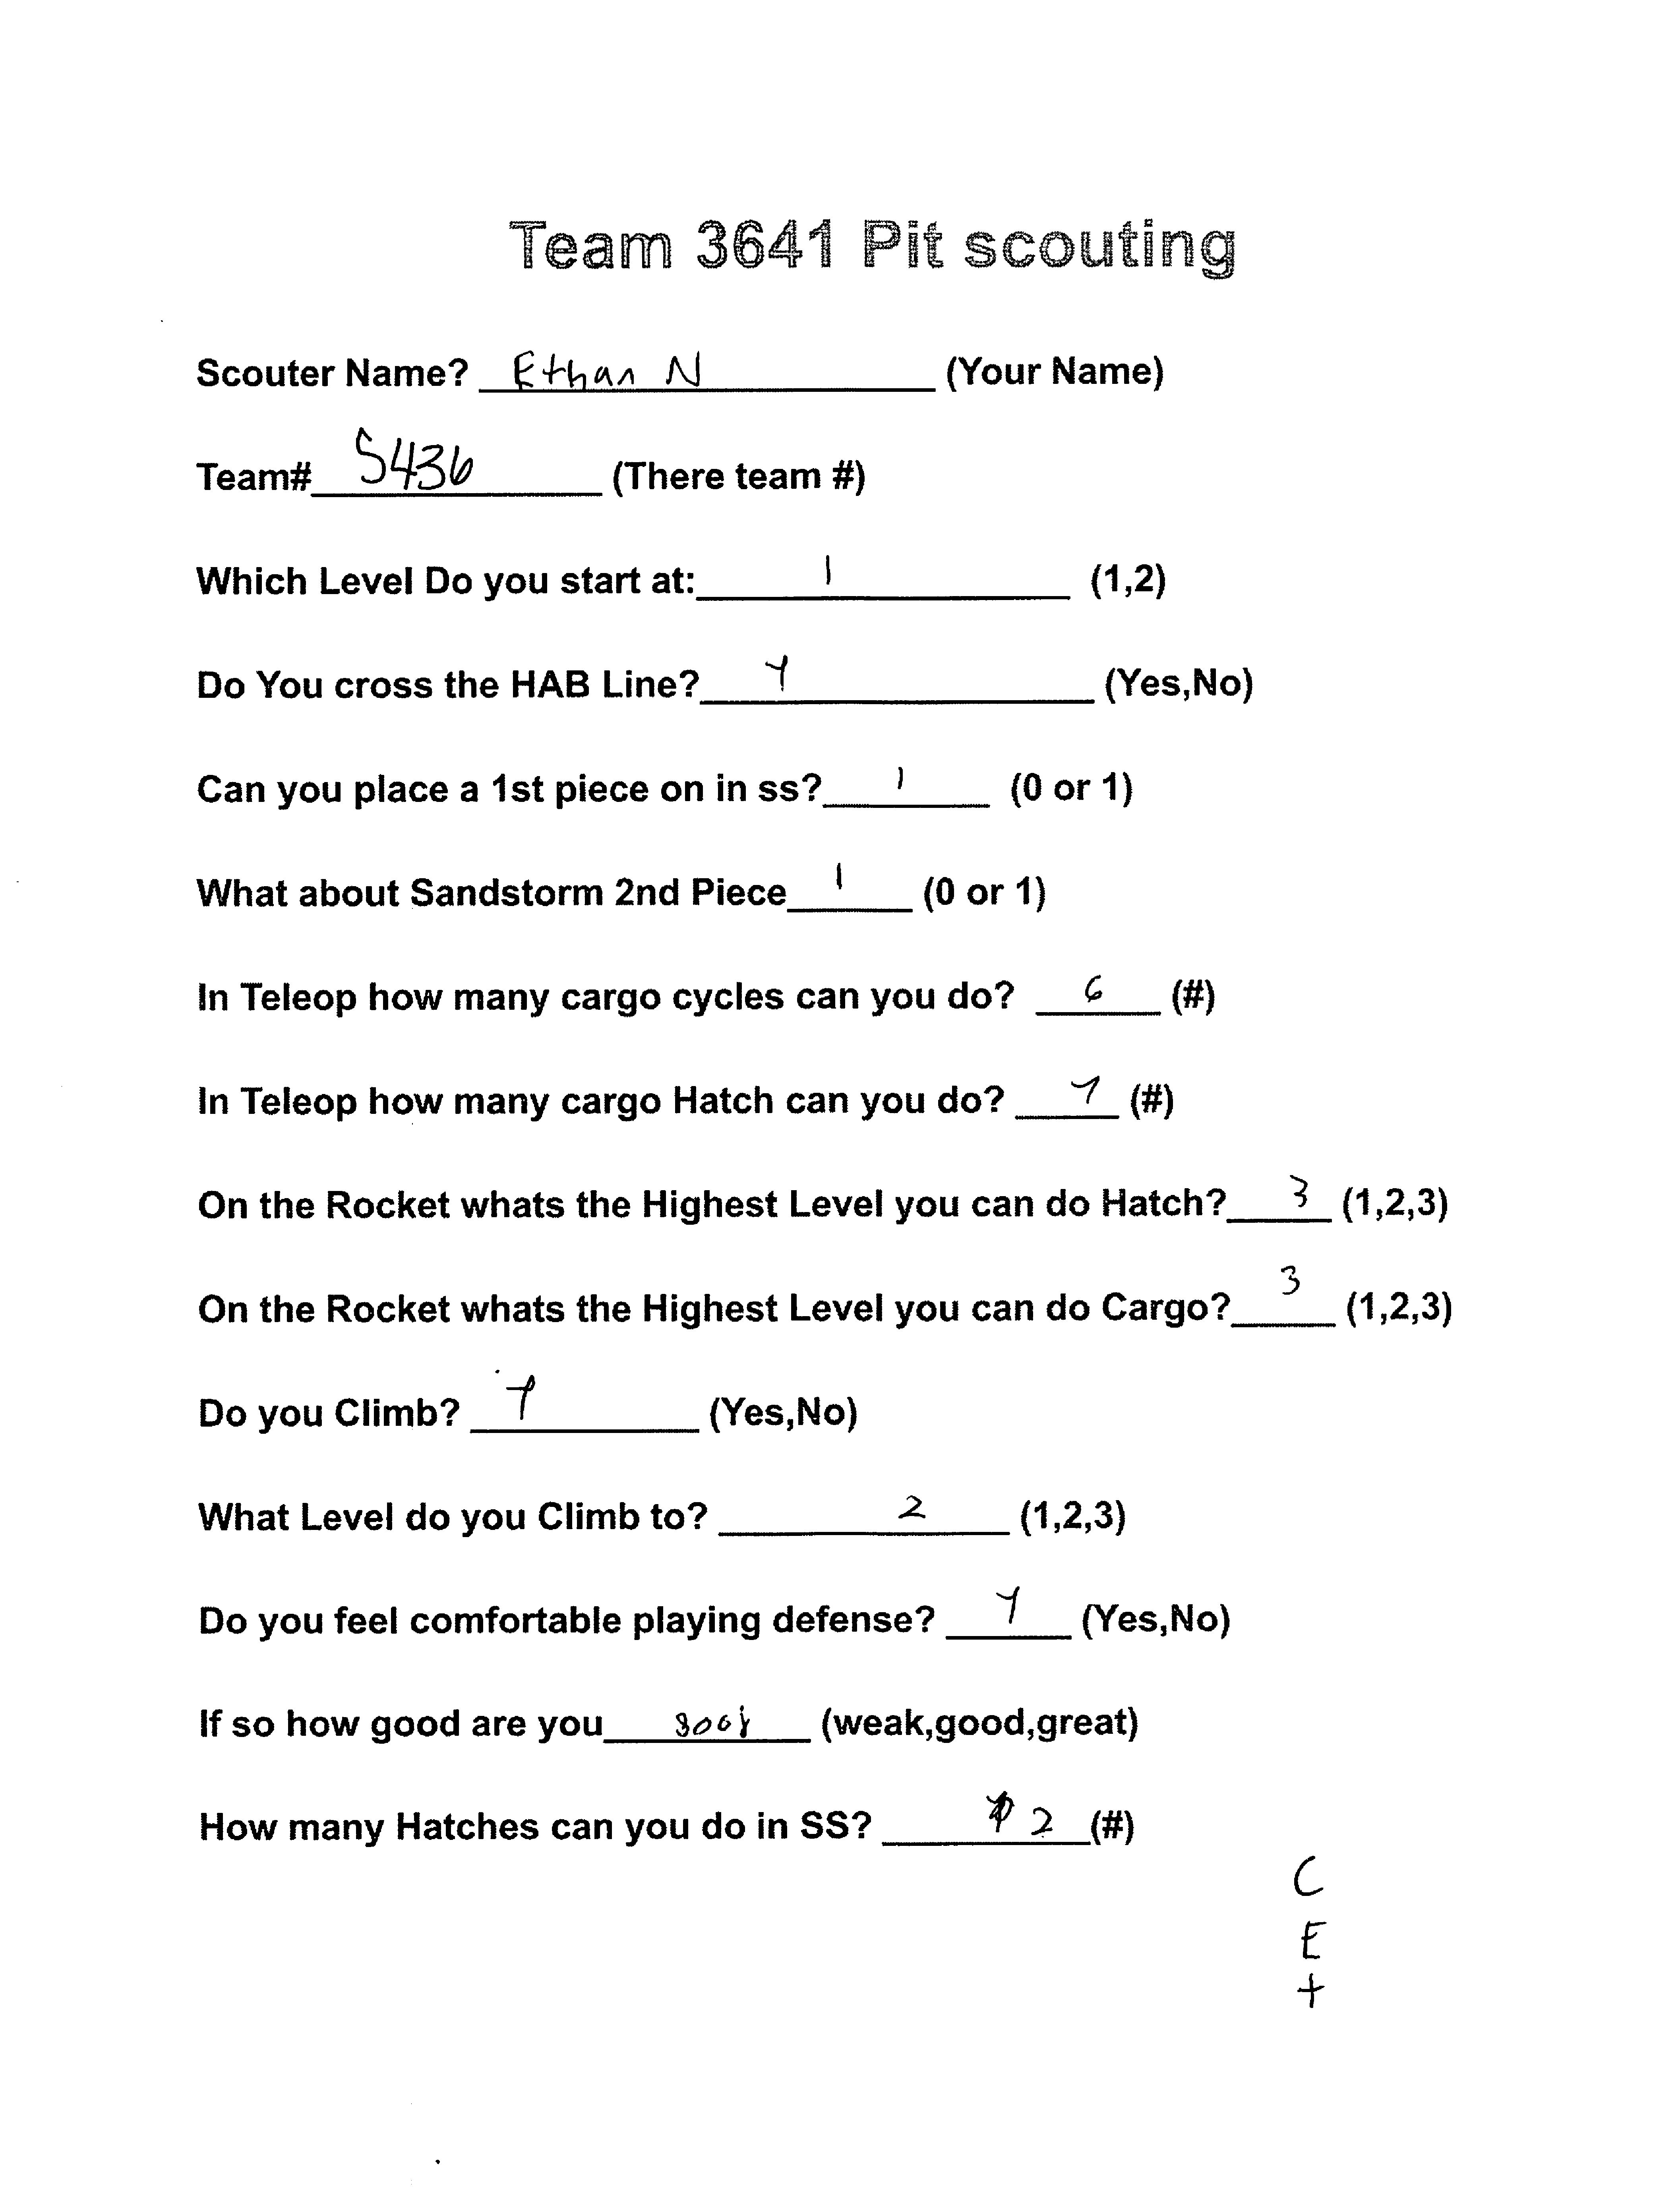 Team 3641 Pit scouting
Scouter Name? Ethan N (Your Name)
Team# 5436 (There team #)
Which Level Do you start at: 1 (1,2)
Do You cross the HAB Line? Y (Yes,No)
Can you place a 1st piece on in ss? 1 (0 or 1)
What about Sandstorm 2nd Piece 1 (0 or 1)
In Teleop how many cargo cycles can you do? 6 (#)
In Teleop how many cargo Hatch can you do? (#)
On the Rocket whats the Highest Level you can do Hatch? 3 (1,2,3)
On the Rocket whats the Highest Level you can do Cargo? 3 (1,2,3)
Do you Climb? Y (Yes,No)
What Level do you Climb to? 2 (1,2,3)
Do you feel comfortable playing defense? Y (Yes,No)
If so how good are you good (weak,good,great)
How many Hatches can you do in SS? 2 (#)
C
E
+